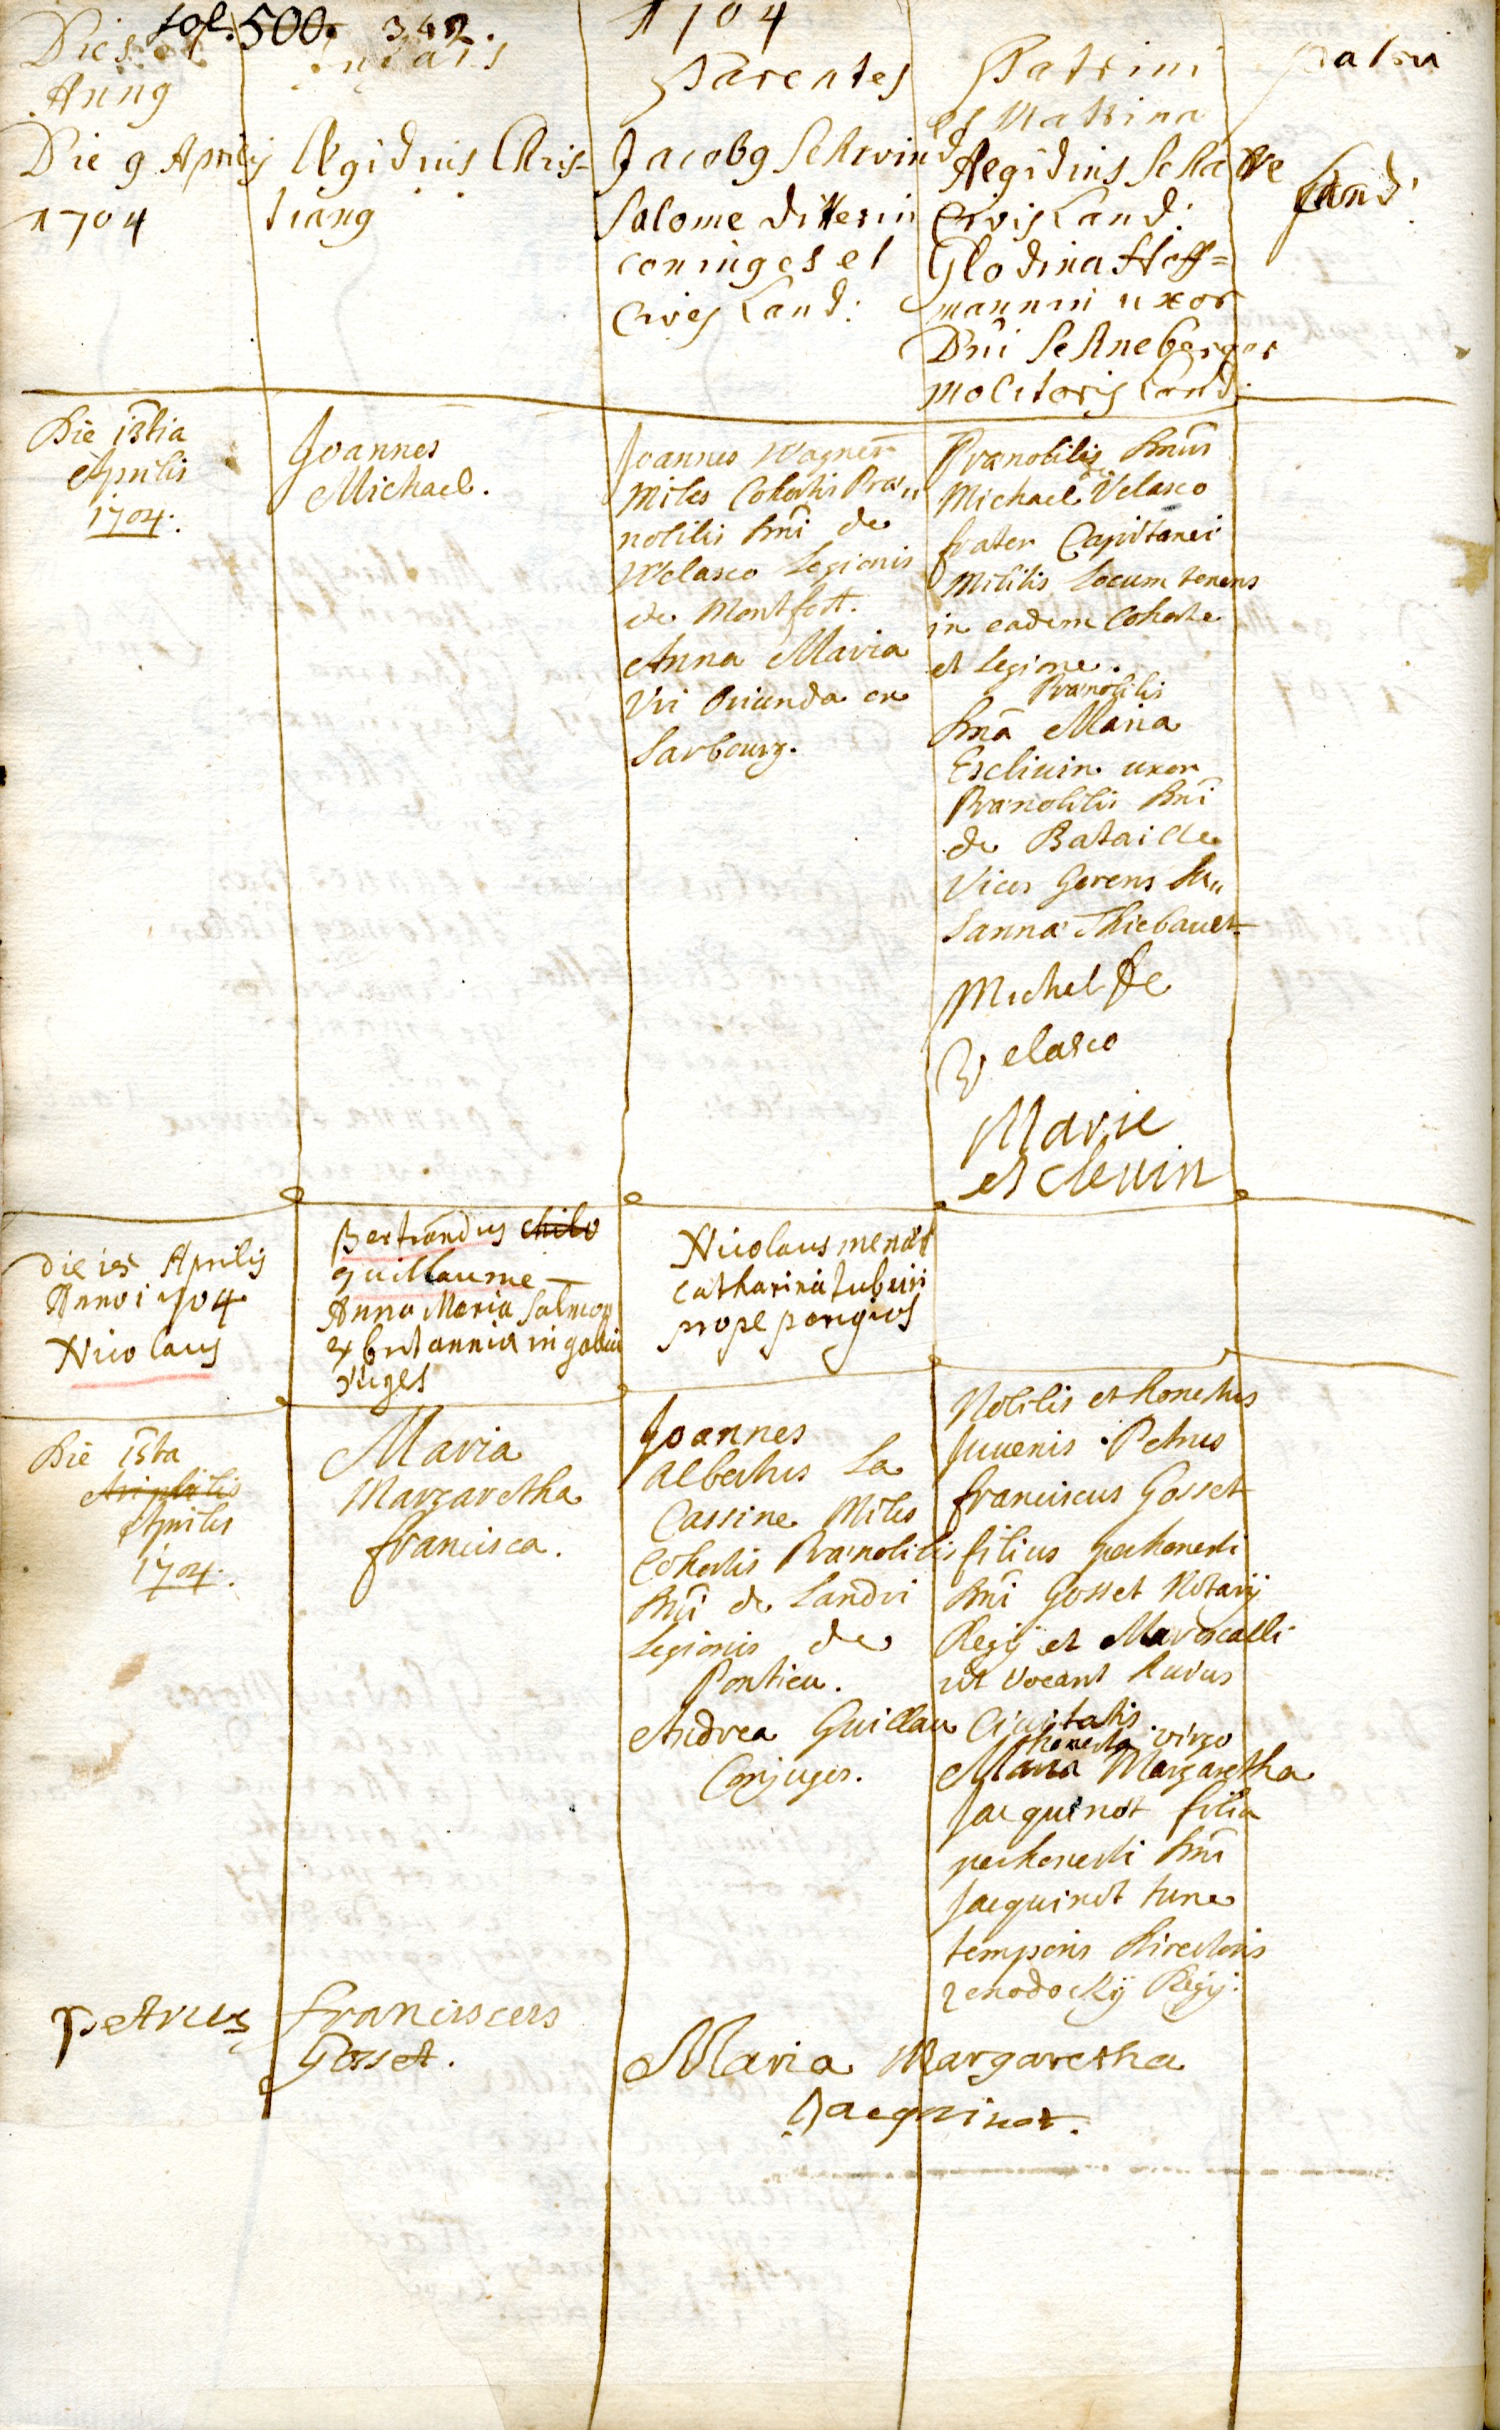 fol. 500. 342.
1704
Dies et
Annq
Infans
Parentes
Patrini
et Matrina
patria
Die 9 Aprilis
1704
Ægidius Chris-
tianq
Jacobq Schwind
Salome Ditterin
coniuges et
Cives Land:
Aegidius Scha
civis Land:
Glodina Hoff=
mannin uxor
Dni Schneberger
molitoris Land:
Land:
Die 13tia
Aprilis
1704.
Joannes
Michael.
Joannes Wagner
Miles Cohortis Præ„
nobilis Dni de
Welasco Legionis
de Montfort.
Anna Maria
Vri Oriunda ex
Sarbourg.
Prænobilis Dnus
Michael de Velasco
frater Capitanei
Militis Locum tenens
in eadem Cohorte
et Legione.
Prænobilis
Dna Maria
Esclivin uxor
Prænobilis Dni
de Bataille
Vices Gerens Su„
sanna Thiebauet
Michel De
Velasco
Marie
esclevin
Die 15 Aprilis
Anno 1704
Nicolaus
Bertrandus chilo
guillaume —
Anna Maria Salmon
ex britannia in gallia
Nicolaus
catharina
prope
Die 15ta
Aprilis
Aprilis
1704.
Maria
Margaretha
francisca.
Joannes
Albertus La
Cassine Miles
Cohortis Prænobilis
Dni de Landri
Legionis de
Pontieu.
Andrea Guillau
Conjuges.
Nobilis et honestus
Juuenis Petrus
franciscus Gosset
filius perhonesti
Dni Gosset Notarij
Regij et Marescalli
ut vocant huius
Ciuitatis
honesta virgo
Maria Margaretha
Jacquinot filia
perhonesti Dni
Jacquinot tunc
temporis Directoris
xenodochij Regij.
Petrus franciscus
Gosset.
Maria Margaretha
Jacquinot.